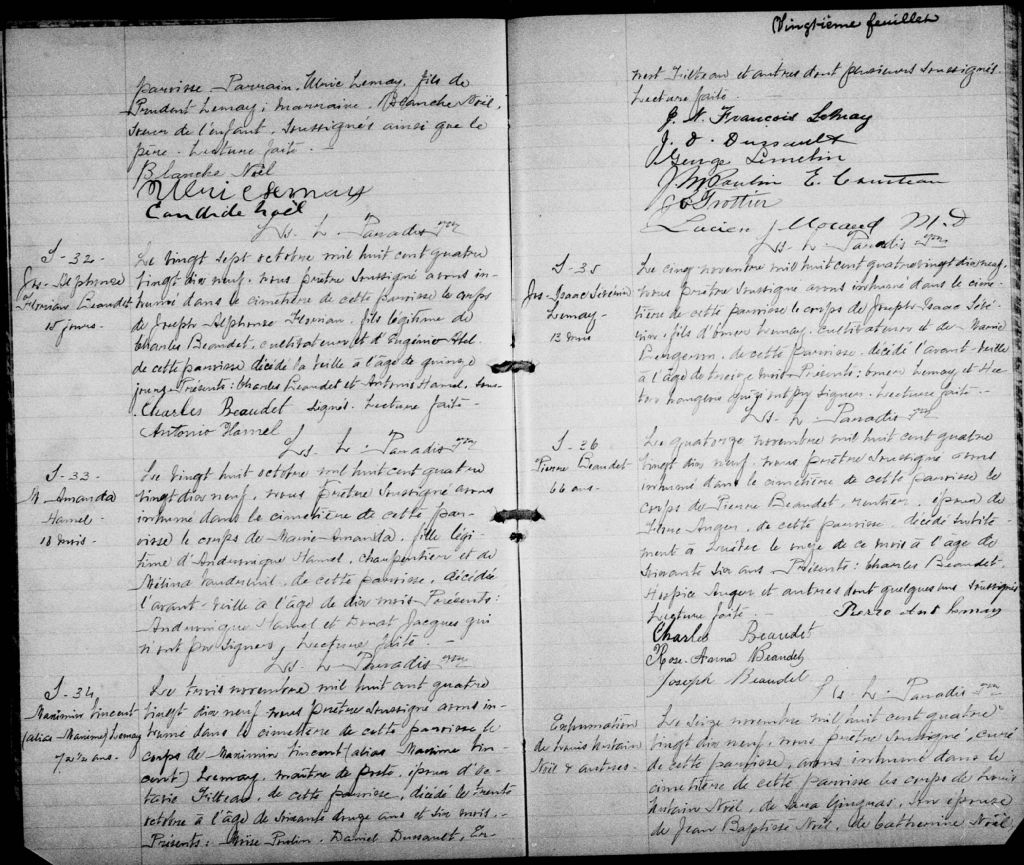 paroisse - Parrain, Ulric Lemay, fils de
Prudent Lemay; marraine, Blanche Noël,
soeur de l'enfant, soussignés ainsi que le
père. Lecture faite.
Blanche Noël
Ulric Lemay
Candide Noël
Ls. L. Paradis
S-32-
Jos-Alphonse
Florian Beaudet
15 jours-
Le vingt sept octobre mil huit cent quatre
vingt dix neuf, nous prêtre soussigné avons in-
humé dans le cimetière de cette paroisse le corps
de Joseph Alphonse Florian, fils légitime de
Charles Beaudet, cultivateur et d'Eugénie
de cette paroisse décédé la veille à l'âge de quinze
jours - Présents: Charles Beaudet et Antonio Hamel, sous-
Charles Beaudet signés. Lecture faite-
Antonio Hamel
Ls. L. Paradis
S-33-
M. Amanda
Hamel-
18 mois-
Le vingt huit octobre mil huit cent quatre
vingt dix neuf, nous prêtre soussigné avons
inhumé dans le cimetière de cette par-
oisse le corps de Marie-Amanda, fille légi-
time d'Andronique Hamel, charpentier et de
Mélina, de cette paroisse, décédée
l'avant-veille à l'âge de dix mois - Présents:
Andronique Hamel et Donat Jacques qui
n'ont pu signer, Lecture faite.
Ls. L. Paradis
S-34,
Maximin Vincent
(alias-Maxime) Lemay
72½ ans-
Le trois novembre mil huit cent quatre
vingt dix neuf nous prêtre soussigné avons in-
humé dans le cimetière de cette paroisse le
corps de Maximin Vincent (alias Maxime Vin-
cent) Lemay, maître de poste, époux d'Oc-
tavie Filteau, de cette paroisse, décédé le trente
octobre à l'âge de soixante douze ans et six mois.
Présents: Moïse Poulin, Daniel Dussault, Er-
Vingtième feuillet
nest Filteau et autres dont plusieurs soussignés.
Lecture faite.
J. N. François Lemay
J. D. Dussault
George Lemelin
J. M. Poulin E.
Trottier
Lucien M.D
Ls. L. Paradis
S-35
Jos-Isaac
Lemay-
13 mois
Le cinq novembre mil huit cent quatre vingt dix neuf,
nous prêtre soussigné avons inhumé dans le cime-
tière de cette paroisse le corps de Joseph Isaac
fils d'Omer Lemay, cultivateur et de Marie
Bergeron, de cette paroisse, décédé l'avant-veille
à l'âge de treize mois - Présents: Omer Lemay et Hec-
tor qui n'ont pu signer. Lecture faite.-
Ls. L. Paradis
S-36
Pierre Beaudet
66 ans-
Le quatorze novembre mil huit cent quatre
vingt dix neuf, nous prêtre soussigné avons
inhumé dans le cimetière de cette paroisse le
corps de Pierre Beaudet, rentier, époux de
Auger, de cette paroisse, décédé subite-
ment à Québec le onze de ce mois à l'âge de
soixante six ans - Présents: Charles Beaudet,
Hospice Auger et autres dont quelques uns soussignés
Lecture faite- Pierre Ant Lemay
Charles Beaudet
Rose-Anna Beaudet
Joseph Beaudet
Ls. L. Paradis
Exhumation
de Louis Antoine
Noël & autres-
Le seize novembre mil huit cent quatre
vingt dix neuf, nous prêtre soussigné, curé
de cette paroisse, avons inhumé dans le
cimetière de cette paroisse les corps de Louis
Antoine Noël, de Gingras, son épouse
de Jean Baptiste Noël, de Catherine Noël,